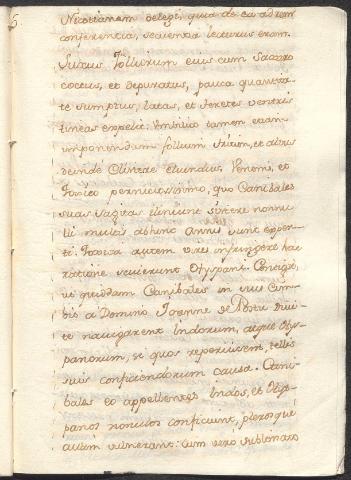 Nicotianam delegi, quia de ea ad rem
conferentia, sequentia lecturus eram.
Succus foliorum eius cum Saccaro
coctus, et depuratus, pauca quantita-
te sumptus, latos, et teretes ventris
lineas expellit: Umbilico tamen etiam
imponendum folium
deinde Clistere eluendus. Veneni, et
Toxico perniciosissimo, quo Canibales
suas sagitas
multis abhinc annis sunt exper-
ti. Toxica autem vires infringere hac
ratione Hyspani. Contigit,
ut quidam Canibales in suis Cim-
bis a Domino Joanne de
te navigarent Indorum, atque Hys-
panorum, si quos reperiissent, telis
suis conficiendorum causa. Cani-
bales eo appellentes Indos, et Hys-
panos nonulos conficiunt, plerosque
autem vulnerant: Cum vero sublimato